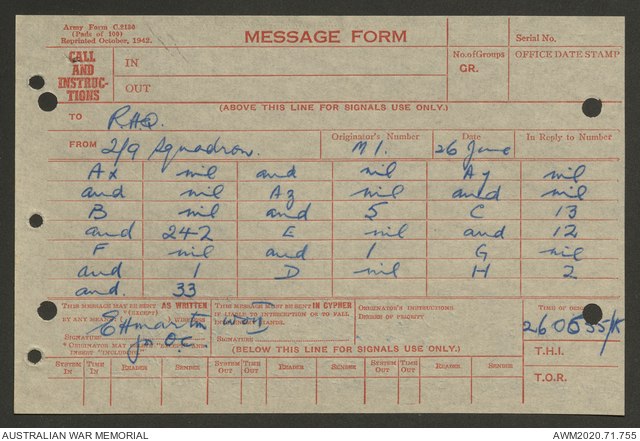 Army Form C.2130
(Pads of 100)
Reprinted October, 1942.
MESSAGE FORM
Serial No.
CALL
AND
INSTRUC-
TIONS
IN
OUT
No. of Groups
GR.
OFFICE DATE STAMP
(ABOVE THIS LINE FOR SIGNALS USE ONLY.)
TO RHQ.
FROM 2/9 Squadron.
Originator's Number M1.
Date 26 June
In Reply to Number
Ax nil and nil Ay nil
and nil Az nil and nil
B nil and 5 C 13
and 242 E nil and 12
F nil and 1 G nil
and 1 D nil H 2
and 33
THIS MESSAGE MAY BE SENT AS WRITTEN
(EXCEPT)
BY ANY MEANS ( ) WIRELESS
THIS MESSAGE MUST BE SENT IN CYPHER
IF LIABLE TO INTERCEPTION OR TO FALL
ORIGINATOR'S INSTRUCTIONS
DEGREE OF PRIORITY
TIME OF
EHMartin WOII
for O.C.
SIGNATURE
260535/K
INSERT "INCLUDING."
(BELOW THIS LINE FOR SIGNALS USE ONLY.)
T.H.I.
SYSTEM IN TIME IN READER SENDER SYSTEM OUT TIME OUT READER SENDER SYSTEM OUT TIME OUT READER SENDER
T.O.R.
AUSTRALIAN WAR MEMORIAL
AWM2020.71.755